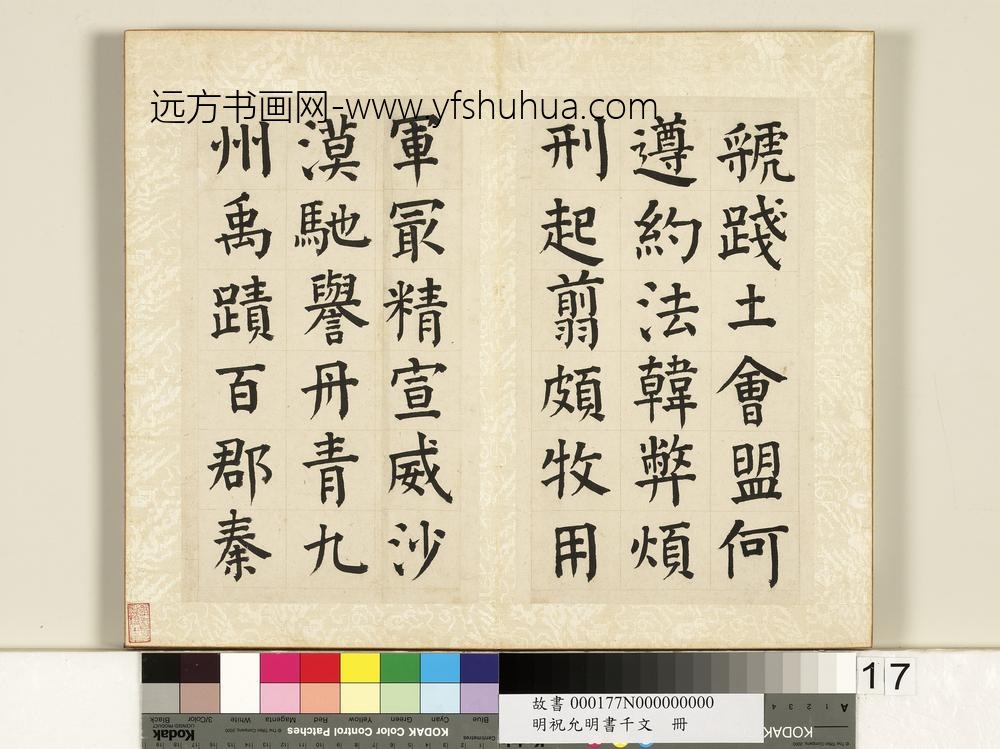 远方书画网-www.yfshuhua.com
虢踐土會盟何
遵約法韓弊煩
刑起翦頗牧用
軍冣精宣威沙
漠馳譽丹青九
州禹蹟百郡秦
17
故書 000177N000000000
明祝允明書千文 冊
Black
3/Color
White
Magenta
Red
Yellow
Green
Cyan
Blue
Kodak
LICENSED PRODUCT
© The Tiffen Company, 2000
KODAK Color Control Patches
Centimetres
KODAK
A 1 2 3 4